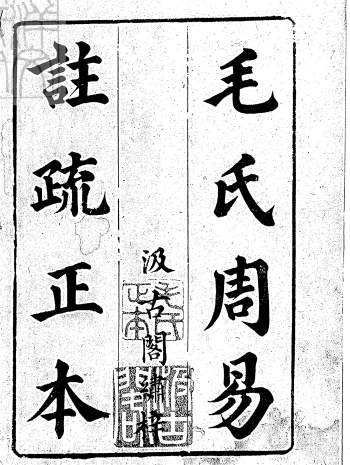 毛氏周易
註疏正本
汲古閣繡梓